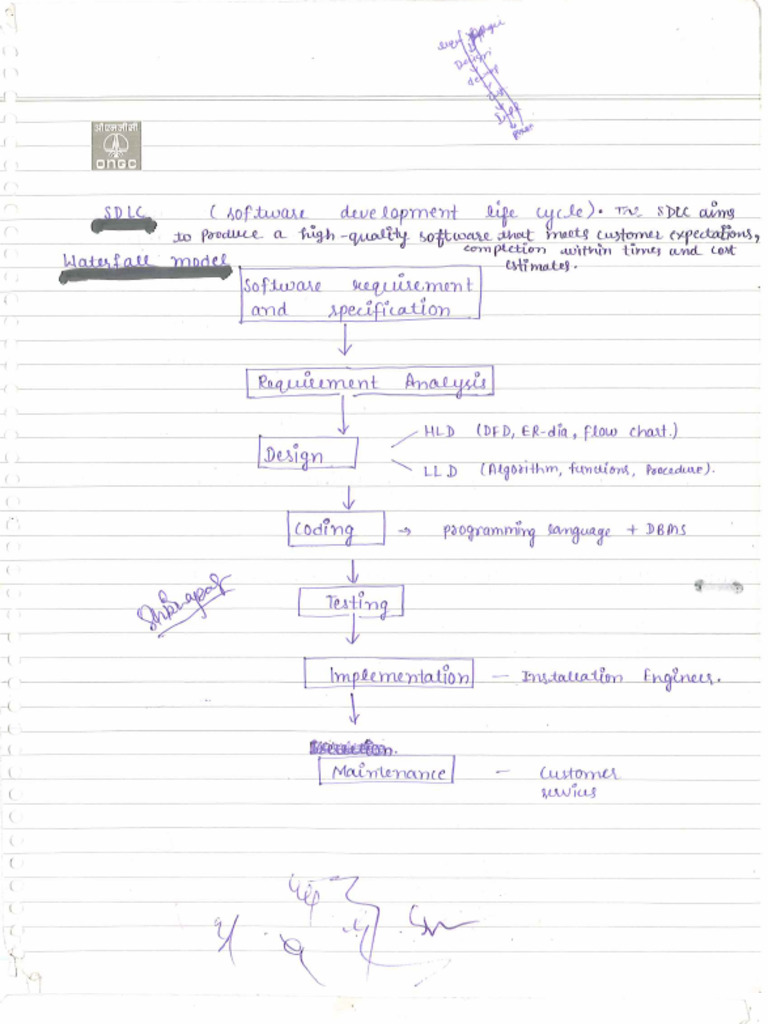 ओएनजीसी
ONGC
SDLC (software development life cycle). The SDLC aims
to produce a high-quality software that meets customer expectations,
completion within times and cost
estimates.
Waterfall model
Software requirement
and specification
Requirement Analysis
Design
HLD (DFD, ER-dia, flow chart.)
LLD (Algorithm, functions, Procedure).
Coding → programming language + DBMS
Testing
Implementation — Installation Engineers.
Maintenance — Customer
services